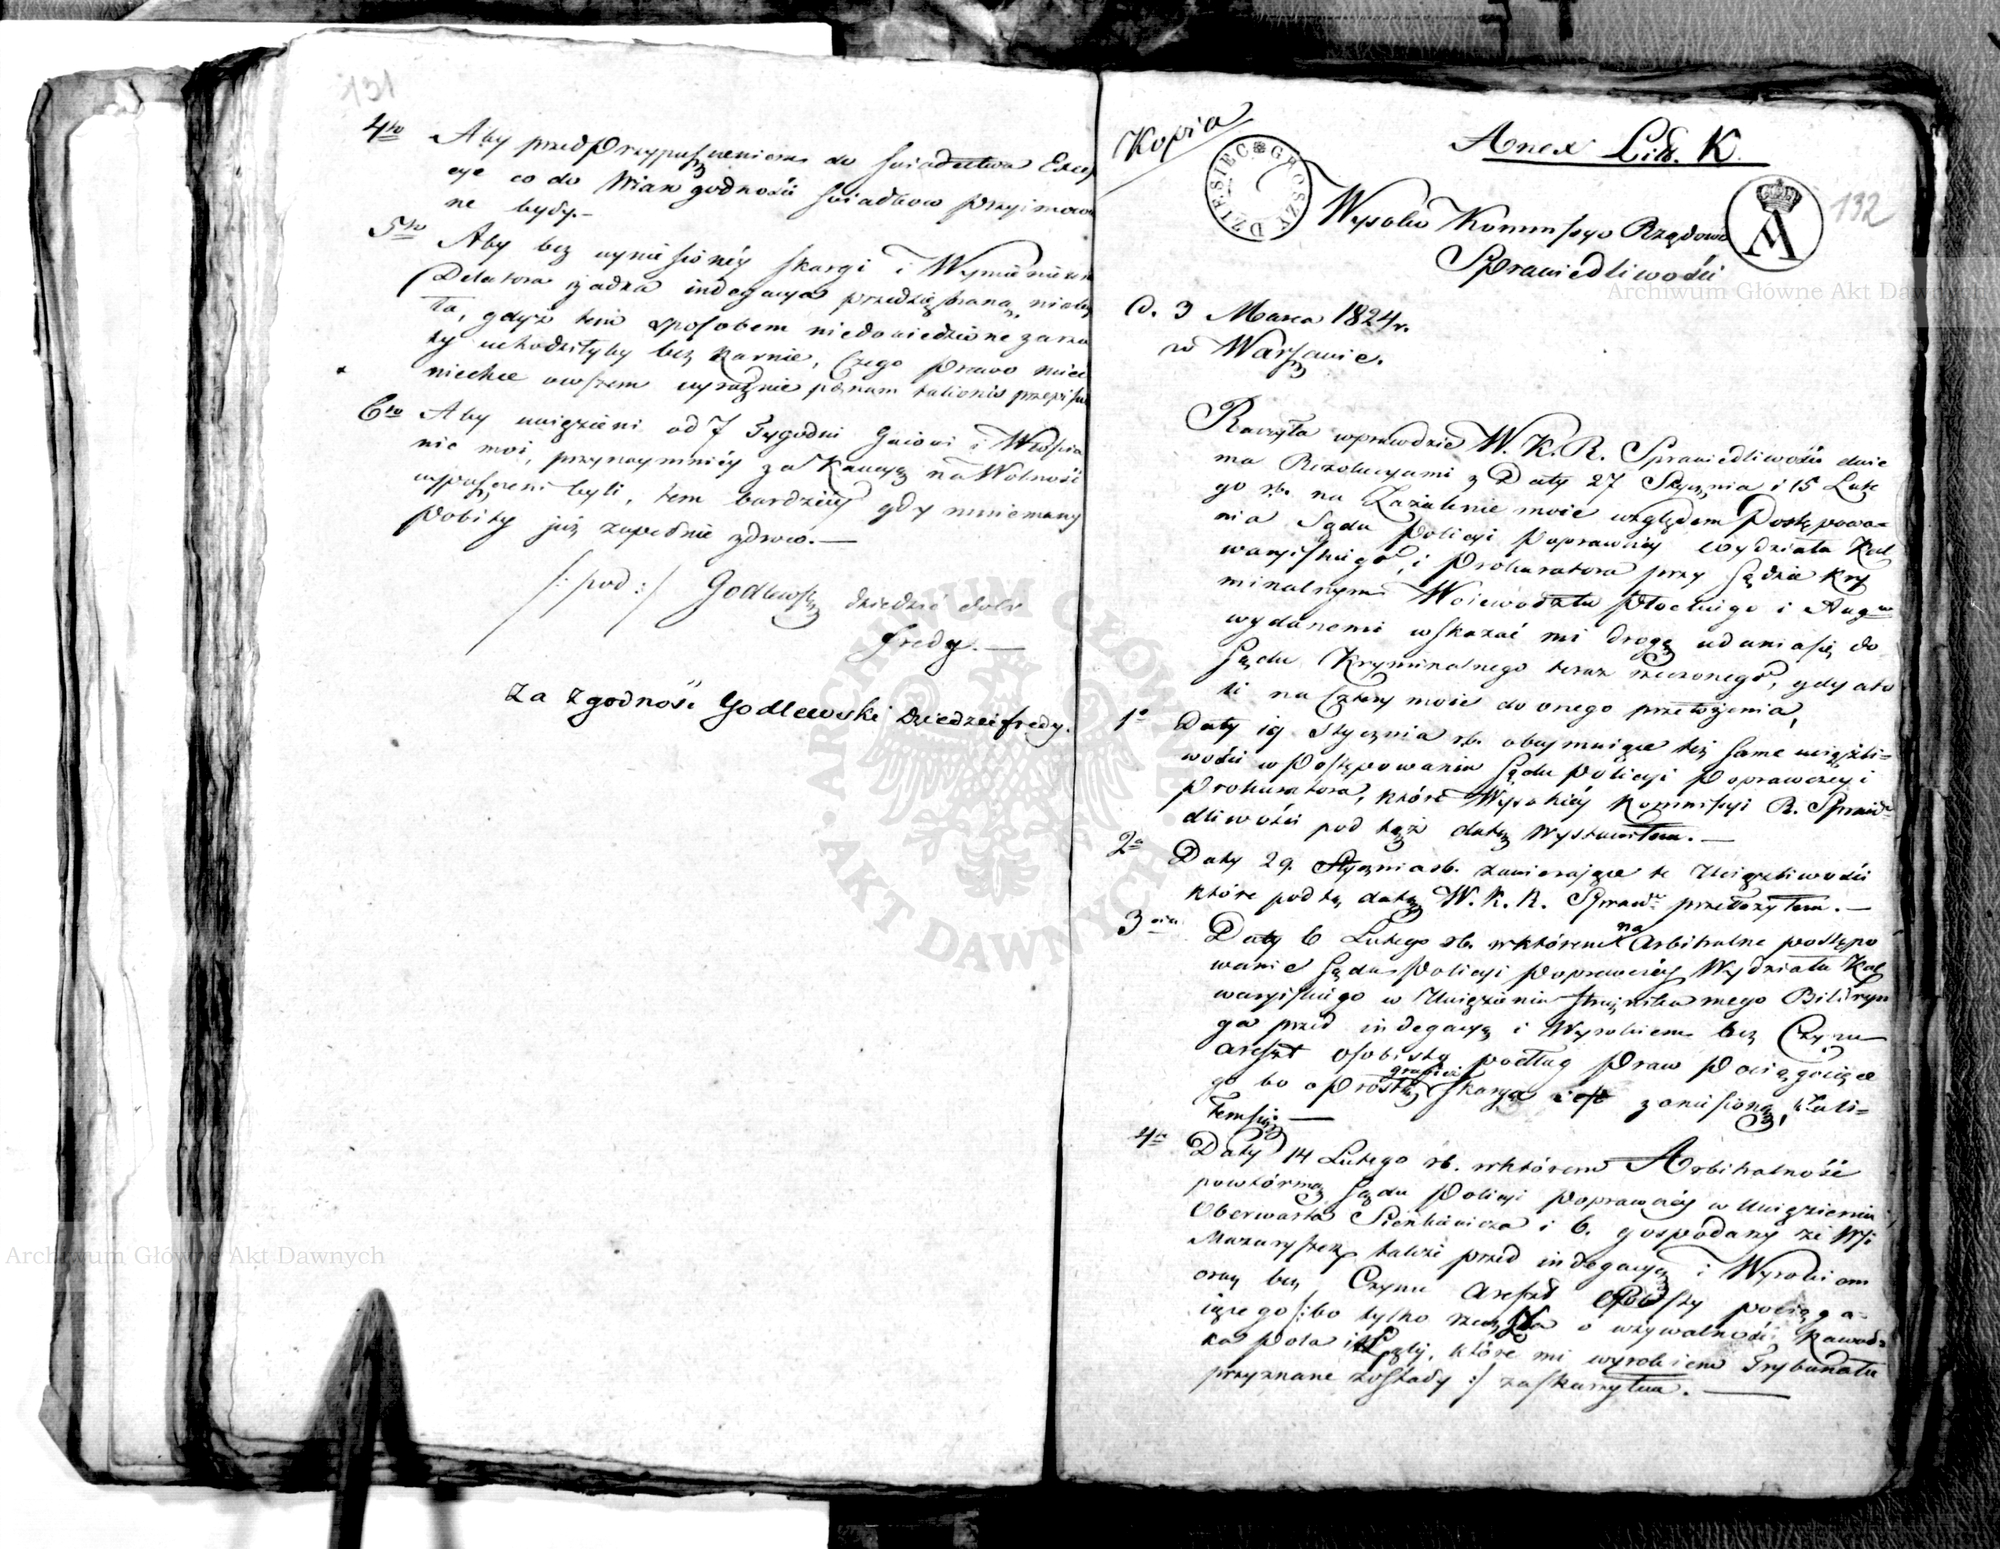 131
4to Aby przed Przypuszczeniem do świadectwa Excep
cye co do Wiarygodności świadków przyimowa
ne były.—
5to Aby bez wyniesionéy skargi i Wymienienia
Delatora żadna indegacya przedsięwziętą nieby
ła, gdyż tem sposobem niedowiedzione zarzu
ty uchodziłyby bez karnie, czego Prawo mieć
niechce owszem wyraźnie poenam talionis przepisuie
6to Aby uwięzieni od 7 Tygodni Gaiowi i Włościa
nie moi, przynaymniéy za Kaucyą na Wolność
wypuszczeni byli, tem bardziéy gdy mniemany
Pobity już zupełnie zdrów.—
/: pod :/ Godlewski dziedzic dóbr
Fredy.—
Za Zgodność Godlewski Dziedzic Fredy.
Kopia
Anex Lit. K.
DZIESIĘĆ GROSZY
132
Wysoka Kommissyo Rządowa
Sprawiedliwości
d. 3 Marca 1824 r.
w Warszawie.
Raczyła wprawdzie W. K. R. Sprawiedliwości dwie
ma Rezolucyami z Daty 27 Stycznia i 15 Lute
go r.b. na Zażalenie moie względem Postępowa=
nia Sądu Policyi Poprawczéy Wydziału Kal
waryiskiego, i Prokuratora przy Sądzie Kry
minalnym Woiewództw Płockiego i Augw
wydanemi wskazać mi drogę udania się do
Sądu Kryminalnego teraz rzeczonego, gdy ato
li na Cztery moie do onego przełożenia,
1o Daty 19 Stycznia r.b. obeymuiące też same uciążli=
wości w Postępowaniu Sądu Policyi Poprawczéy i
Prokuratora, które Wysokiéy Kommissyi R. Sprawie
dliwości pod tąż datą Wystawiłem.—
2o Daty 29. Stycznia r.b. zawieraiące te Uciążliwości
które pod tą datą W. K. R. Spraw. przełożyłem.—
3cie Daty 6 Lutego r.b. w którem na Arbitralne postępo
wanie Sądu Policyi Poprawczéy Wydziału Kal
waryiskiego w Uwięzieniu Strażnika mego Bildryn
ga przed indegacyą i Wyrokiem bez Czynu
areszt osobisty podług Praw Pociągaiące
go bo o Prostą grabież skarga iest zaniesioną, żali=
łem się,—
4to Daty 14 Lutego r.b. w którem Arbitralność
powtórną Sądu Policyi Poprawczéy w Uwięzieniu
Oberwarta Sienkiewicza i 6. gospodarzy ze Wsi
Mazuryszek także przed indegacyą i Wyrokiem
oraz bez Czynu areszt osobisty pociąga=
iącego /: bo tylko rzecz szła o używalność Kawał=
ka Pola i Łąki, które mi wyrokiem Trybunału
przyznane zostały :/ zaskarżyłem.—
Archiwum Główne Akt Dawnych
Archiwum Główne Akt Dawnych
ARCHIWUM GŁÓWNE AKT DAWNYCH